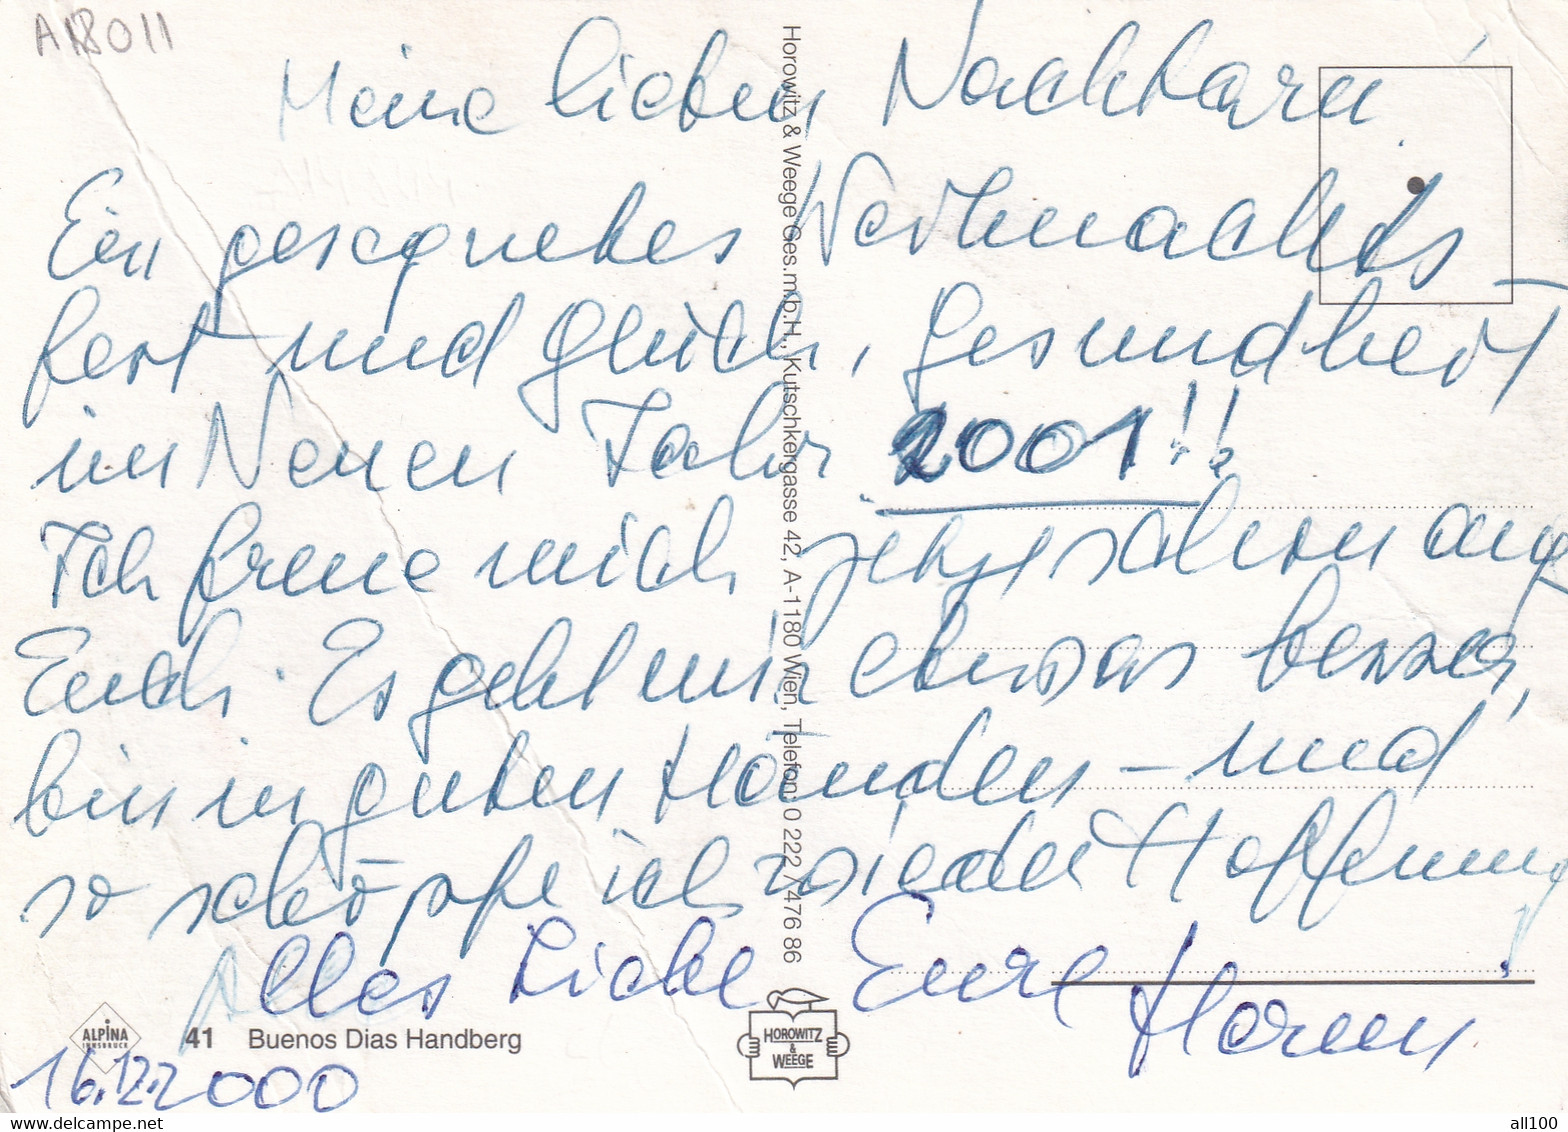 A18011
Meine lieben Nachbarn
Ein gesegnetes Weihnachts
fest und Glück, Gesundheit
im Neuen Jahr 2001!!
Ich freue mich jetzt schon auf
Euch. Es geht mir etwas besser,
bin in guten Händen – und
so schöpfe ich wieder Hoffnung!
Alles Liebe Eure
16.12.2000
Horowitz & Weege Ges.m.b.H., Kutschkergasse 42, A-1180 Wien, Telefon 0 222 / 476 86
ALPINA
INNSBRUCK
41 Buenos Dias Handberg
HOROWITZ
&
WEEGE
www.delcampe.net
all100